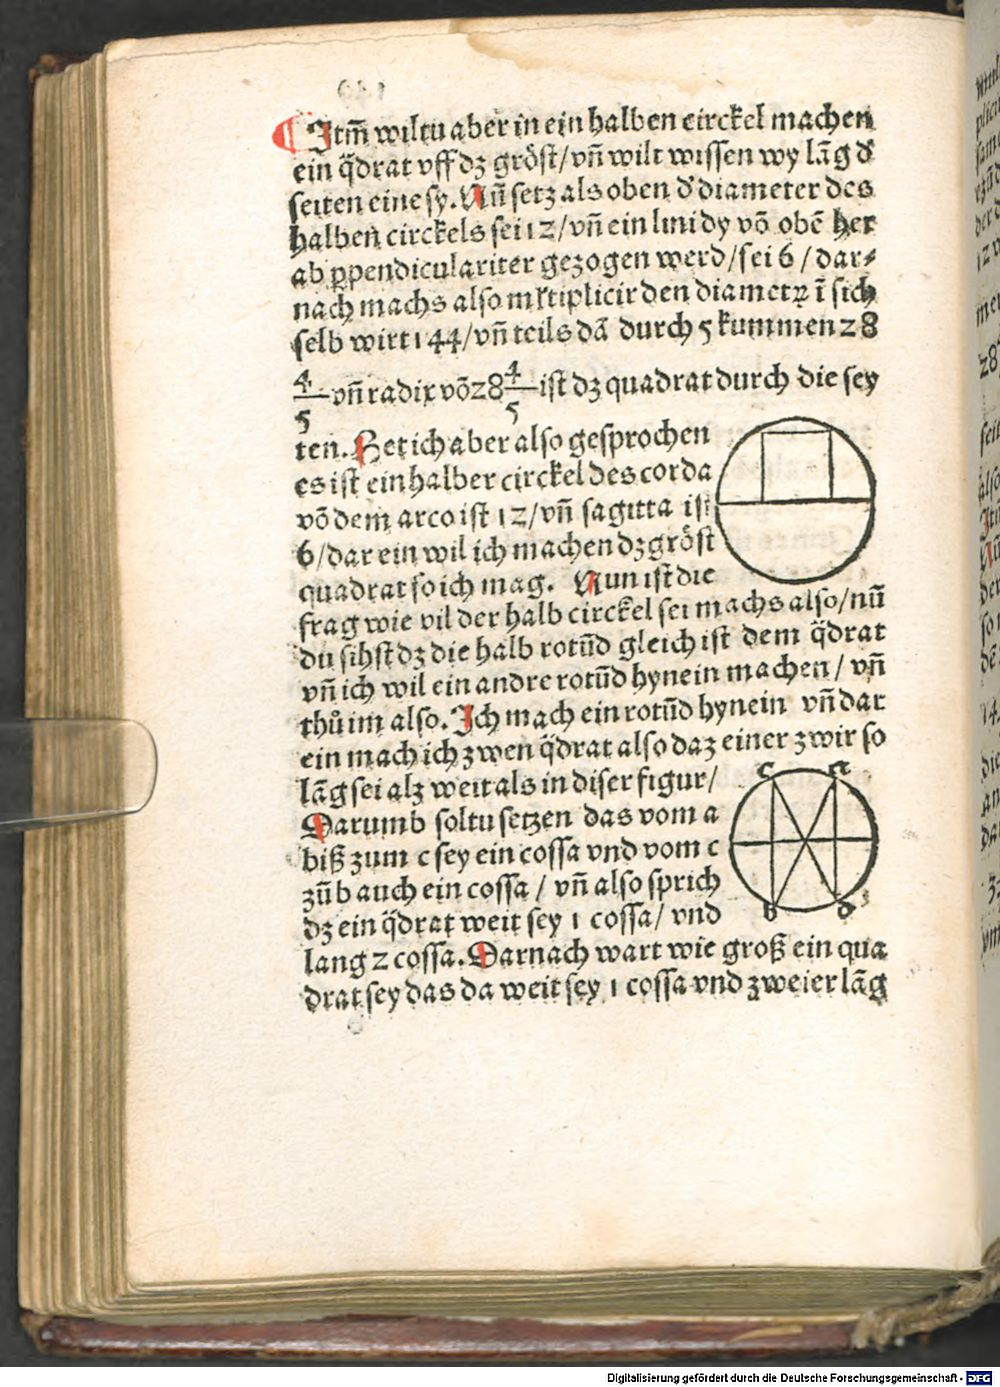 ¶ Itm̃ wiltu aber in ein halben circkel machen
ein q̃drat vff dz gröst/ vñ wilt wissen wy lãg d'
seiten eine sy. Nũ setz als oben d' diameter des
halben circkels sei 12/ vñ ein lini dy võ obẽ her
ab ꝑpendiculariter gezogen werd/ sei 6/ dar⸗
nach machs also mltiplicir den diametꝝ ĩ sich
selb wirt 144/ vñ teils dã durch 5 kummen 28
4/5 vñ radix võ 28 4/5 ist dz quadrat durch die sey
ten. Het ich aber also gesprochen
es ist ein halber circkel des corda
võ dem arco ist 12/ vñ sagitta ist
6/ dar ein wil ich machen dz gröst
quadrat so ich mag. Nun ist die
frag wie vil der halb circkel sei machs also/ nũ
du sihst dz die halb rotũd gleich ist dem q̃drat
vñ ich wil ein andre rotũd hynein machen/ vñ
thů im also. Ich mach ein rotũd hynein vñ dar
ein mach ich zwen q̃drat also daz einer zwir so
lãg sei alz weit als in diser figur/
Darumb soltu setzen das vom a
biß zum c sey ein cossa vnd vom c
zũ b auch ein cossa / vñ also sprich
dz ein q̃drat weit sey 1 cossa/ vnd
lang 2 cossa. Darnach wart wie groß ein qua
drat sey das da weit sey 1 cossa vnd zweier lãg
c a
b d
Digitalisierung gefördert durch die Deutsche Forschungsgemeinschaft - DFG